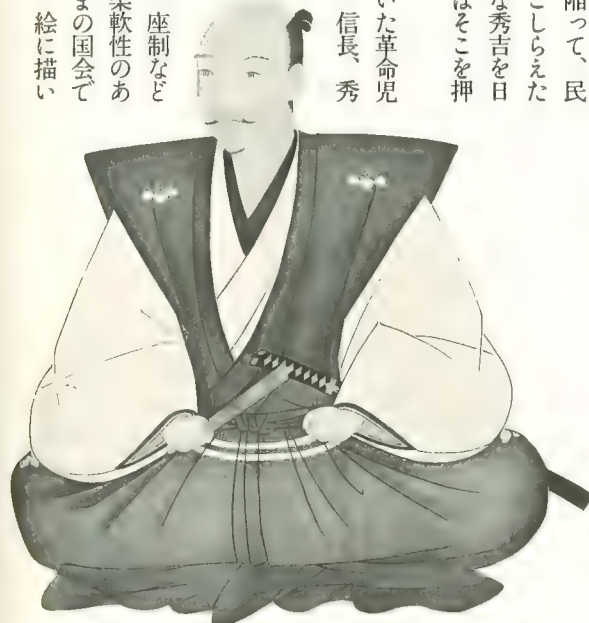 陥って、民
こしらえた
な秀吉を日
はそこを押
いた革命児
信長、秀
座制など
柔軟性のあ
まの国会で
絵に描い